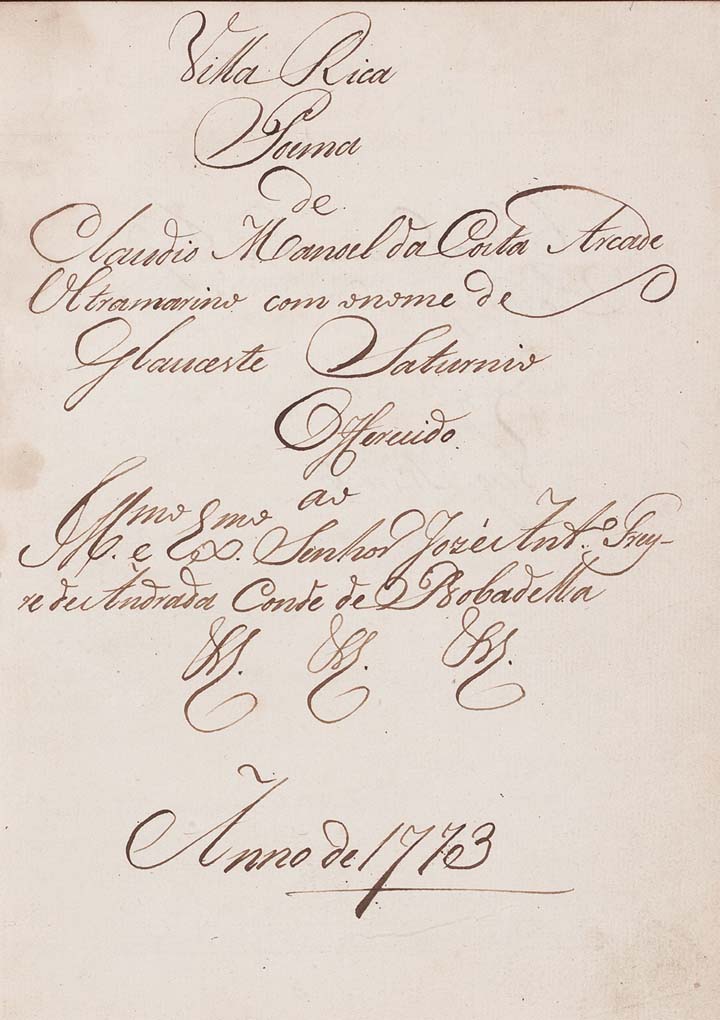 Villa Rica
Poema
de
Claudio Manoel da Costa Arcade
Ultramarino com o nome de
Glauceste Saturnio
Offerecido
ao
Illmo. e Exmo. Senhor Jozé Anto. Frey-
re de Andrada Conde de Bobadella
&&. &&. &&.
Anno de 1773